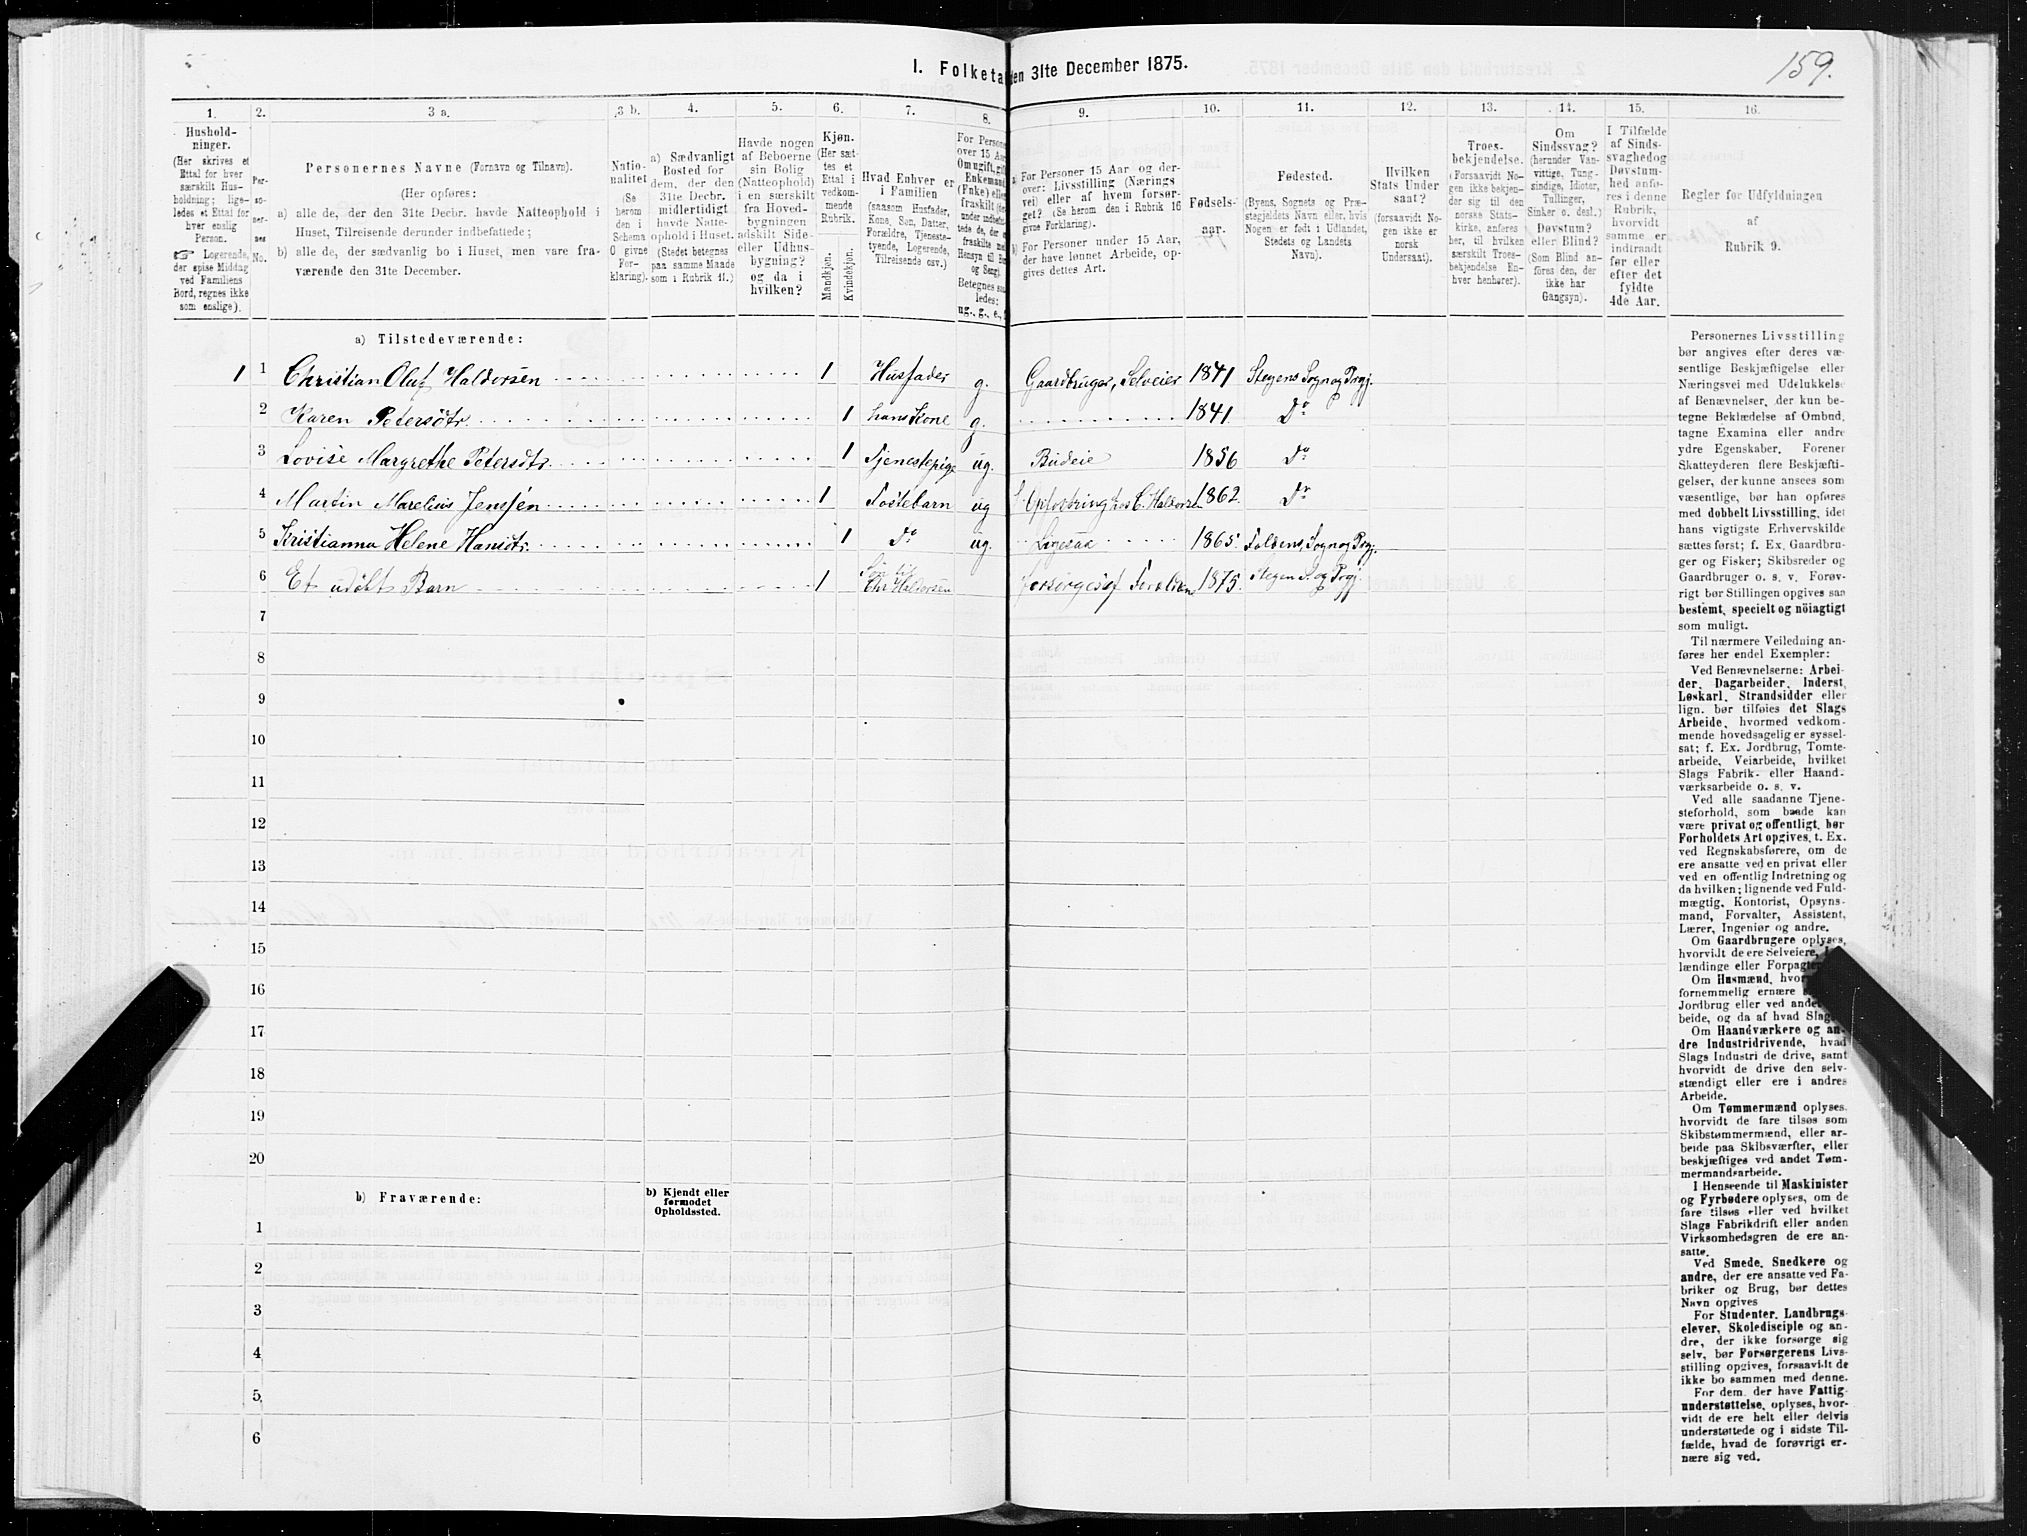 159.
I. Folketal den 31te December 1875.
1. 2. 3 a. 3 b. 4. 5. 6. 7. 8. 9. 10. 11. 12. 13. 14. 15. 16.
Hushold-
ninger.
(Her skrives et
Ettal for hver
særskilt Hus-
holdning; lige-
ledes et Ettal for
hver enslig
Person.
☞ Logerende,
der spise Middag
ved Familiens
Bord, regnes ikke
som enslige).
Per-
so-
ner-
nes
No.
Personernes Navne (Fornavn og Tilnavn).
(Her opføres:
a) alle de, der den 31te Decbr. havde Natteophold i
Huset, Tilreisende derunder indbefattede;
b) alle de, der sædvanlig bo i Huset, men vare fra-
værende den 31te December.
Natio-
nalitet
(Se
herom
den i
Schema
O givne
For-
klaring).
a) Sædvanligt
Bosted for
dem, der den
31te Decbr.
midlertidigt
havde Natte-
ophold i Huset.
(Stedet betegnes
paa samme Maade
som i Rubrik 11.)
Havde nogen
af Beboerne
sin Bolig
(Natteophold)
i en særskilt
fra Hoved-
bygningen
adskilt Side-
eller Udhus-
bygning?
og da i
hvilken?
Kjøn.
(Her sæt-
tes et
Ettal i
vedkom-
mende
Rubrik.
Mandkjøn.
Kvindekjøn.
Hvad Enhver er
i Familien
(saasom Husfader,
Kone, Søn, Datter,
Forældre, Tjeneste-
tyende, Logerende,
Tilreisende osv.)
For Persone
over 15 Aar
Om ugift, gift
Enkemand
(Enke) elle
fraskilt
Betegnes saa-
ledes:
ug., g., e.,
a) For Personer 15 Aar og der-
over: Livsstilling (Nærings
vei) eller af hvem forsør-
get? (Se herom den i Rubrik 16
givne Forklaring).
b) For Personer under 15 Aar,
der have lønnet Arbeide, op-
gives dettes Art.
Fødsels-
aar.
Fødested.
(Byens, Sognets og Præ-
stegjeldets Navn eller, hvis
Nogen er født i Udlandet,
Stedets og Landets
Navn).
Hvilken
Stats Under
saat?
(forsaavidt No-
gen ikke er
norsk
Undersaat).
Troes-
bekjendelse.
(Forsaavidt No-
gen ikke bekjen-
der sig til den
norske Stats-
kirke, anføres
her, til hvilken
særskilt Troes-
bekjendelse En-
hver henhører).
Om
Sindssvag?
(herunder Van-
vittige, Tung-
sindige, Idioter,
Tullinger,
Sinker o. desl.)
Døvstum?
eller Blind?
(Som Blind an-
føres den, der
ikke har
Gangsyn).
I Tilfælde
af Sinds-
svaghed og
Døvstum-
hed anfø-
res i denne
Rubrik,
hvorvidt
samme er
indtraadt
før eller
efter det
fyldte
4de Aar.
Regler før Udfyldningen
af
Rubrik 9.
a) Tilstedeværende:
1 1 Christian Oluf Haldorsen 1 Husfader g. Gaardbruger, Selveier 1841 Stegens Sogn og Prgj.
2 Karen Petersdtr. 1 hans Kone g. 1841. Do
3 Lovise Margrethe Petersdtr. 1 Tjenestepige ug. Budeie 1856 Do
4 Martin Marelius Jenssen 1 Fostebarn ug Opfostring hos C. Haldorsen 1862. Do
5 Kristianna Helene Hansdtr. 1 Do ug. Ligesaa 1865. Foldens Sogn og Prgj.
6 Et udøbt Barn 1 Søn til Chr Haldorsen forsørges af Foreldrene 1875. Stegen S. og Prgj.
7
8
9
10
11
12
13
14
15
16
17
18
19
20
b) Fraværende:
b) Kjendt eller
formodet
Opholdssted.
1
2
3
4
5
6
Personernes Livsstilling
bør angives efter deres væ-
sentlige Beskjæftigelse eller
Næringsvei med Udelukkelse
af Benævnelser, der kun be-
tegne Beklædelse af Ombud,
tagne Examina eller andre
ydre Egenskaber. Forener
Skatteyderen flere Beskjæfti-
gelser, der kunne ansees som
væsentlige, bør han opføres
med dobbelt Livsstilling, idet
hans vigtigste Erhvervskilde
sættes først; f. Ex. Gaardbru-
ger og Fisker; Skibsreder og
Gaardbruger o. s. v. Forøv-
rigt bør Stillingen opgives saa
bestemt, specielt og nöiagtigt
som muligt.
Til nærmere Veiledning an-
føres her endel Exempler:
Ved Benævnelserne: Arbei-
der, Dagarbeider, Inderst,
Løskarl, Strandsidder eller
lign. bør tilføies det Slags
Arbeide, hvormed vedkom-
mende hovedsagelig er syssel-
sat; f. Ex. Jordbrug, Tomte-
arbeide, Veiarbeide, hvilket
Slags Fabrik- eller Haand-
værksarbeide o. s. v.
Ved alle saadanne Tjene-
steforhold, som baade kan
være privat og offentligt, bør
Forholdets Art opgives, t. Ex.
ved Regnskabsførere, om de
ere ansatte ved en privat eller
ved en offentlig Indretning og
da hvilken; lignende ved Fuld-
mægtig, Kontorist, Opsyns-
mand, Forvalter, Assistent,
Lærer, Ingeniør og andre.
Om Gaardbrugere oplyses,
hvorvidt de ere Selveiere,
lændinge eller Forpagter
Om Husmænd, hvor
fornemmelig ernære
Jordbrug eller ved andet
beide, og da af hvad Slags
Om Haandværkere og an-
dre Industridrivende, hvad
Slags Industri de drive, samt
hvorvidt de drive den selv-
stændigt eller ere i andres
Arbeide.
Om Tømmermænd oplyses,
hvorvidt de fare tilsøs som
Skibstømmermænd, eller ar-
beide paa Skibsværfter, eller
beskjæftiges ved andet Tøm-
mermandsarbeide.
I Henseende til Maskinister
og Fyrbødere oplyses, om de
fare tilsøs eller ved hvilket
Slags Fabrikdrift eller anden
Virksomhedsgren de ere an-
satte.
Ved Smede, Snedkere og
andre, der ere ansatte ved Fa-
briker og Brug, bør dettes
Navn opgives
For Studenter, Landbrugs-
elever, Skoledisciple og an-
dre, der ikke forsørge sig
selv, bør Forsørgerens Livs-
stilling opgives, forsaavidt de
ikke bo sammen med denne.
For dem, der have Fattig-
understøttelse, oplyses, hvor-
vidt de ere helt eller delvis
understøttede og i sidste Til-
fælde, hvad de forøvrigt er-
nære sig ved.